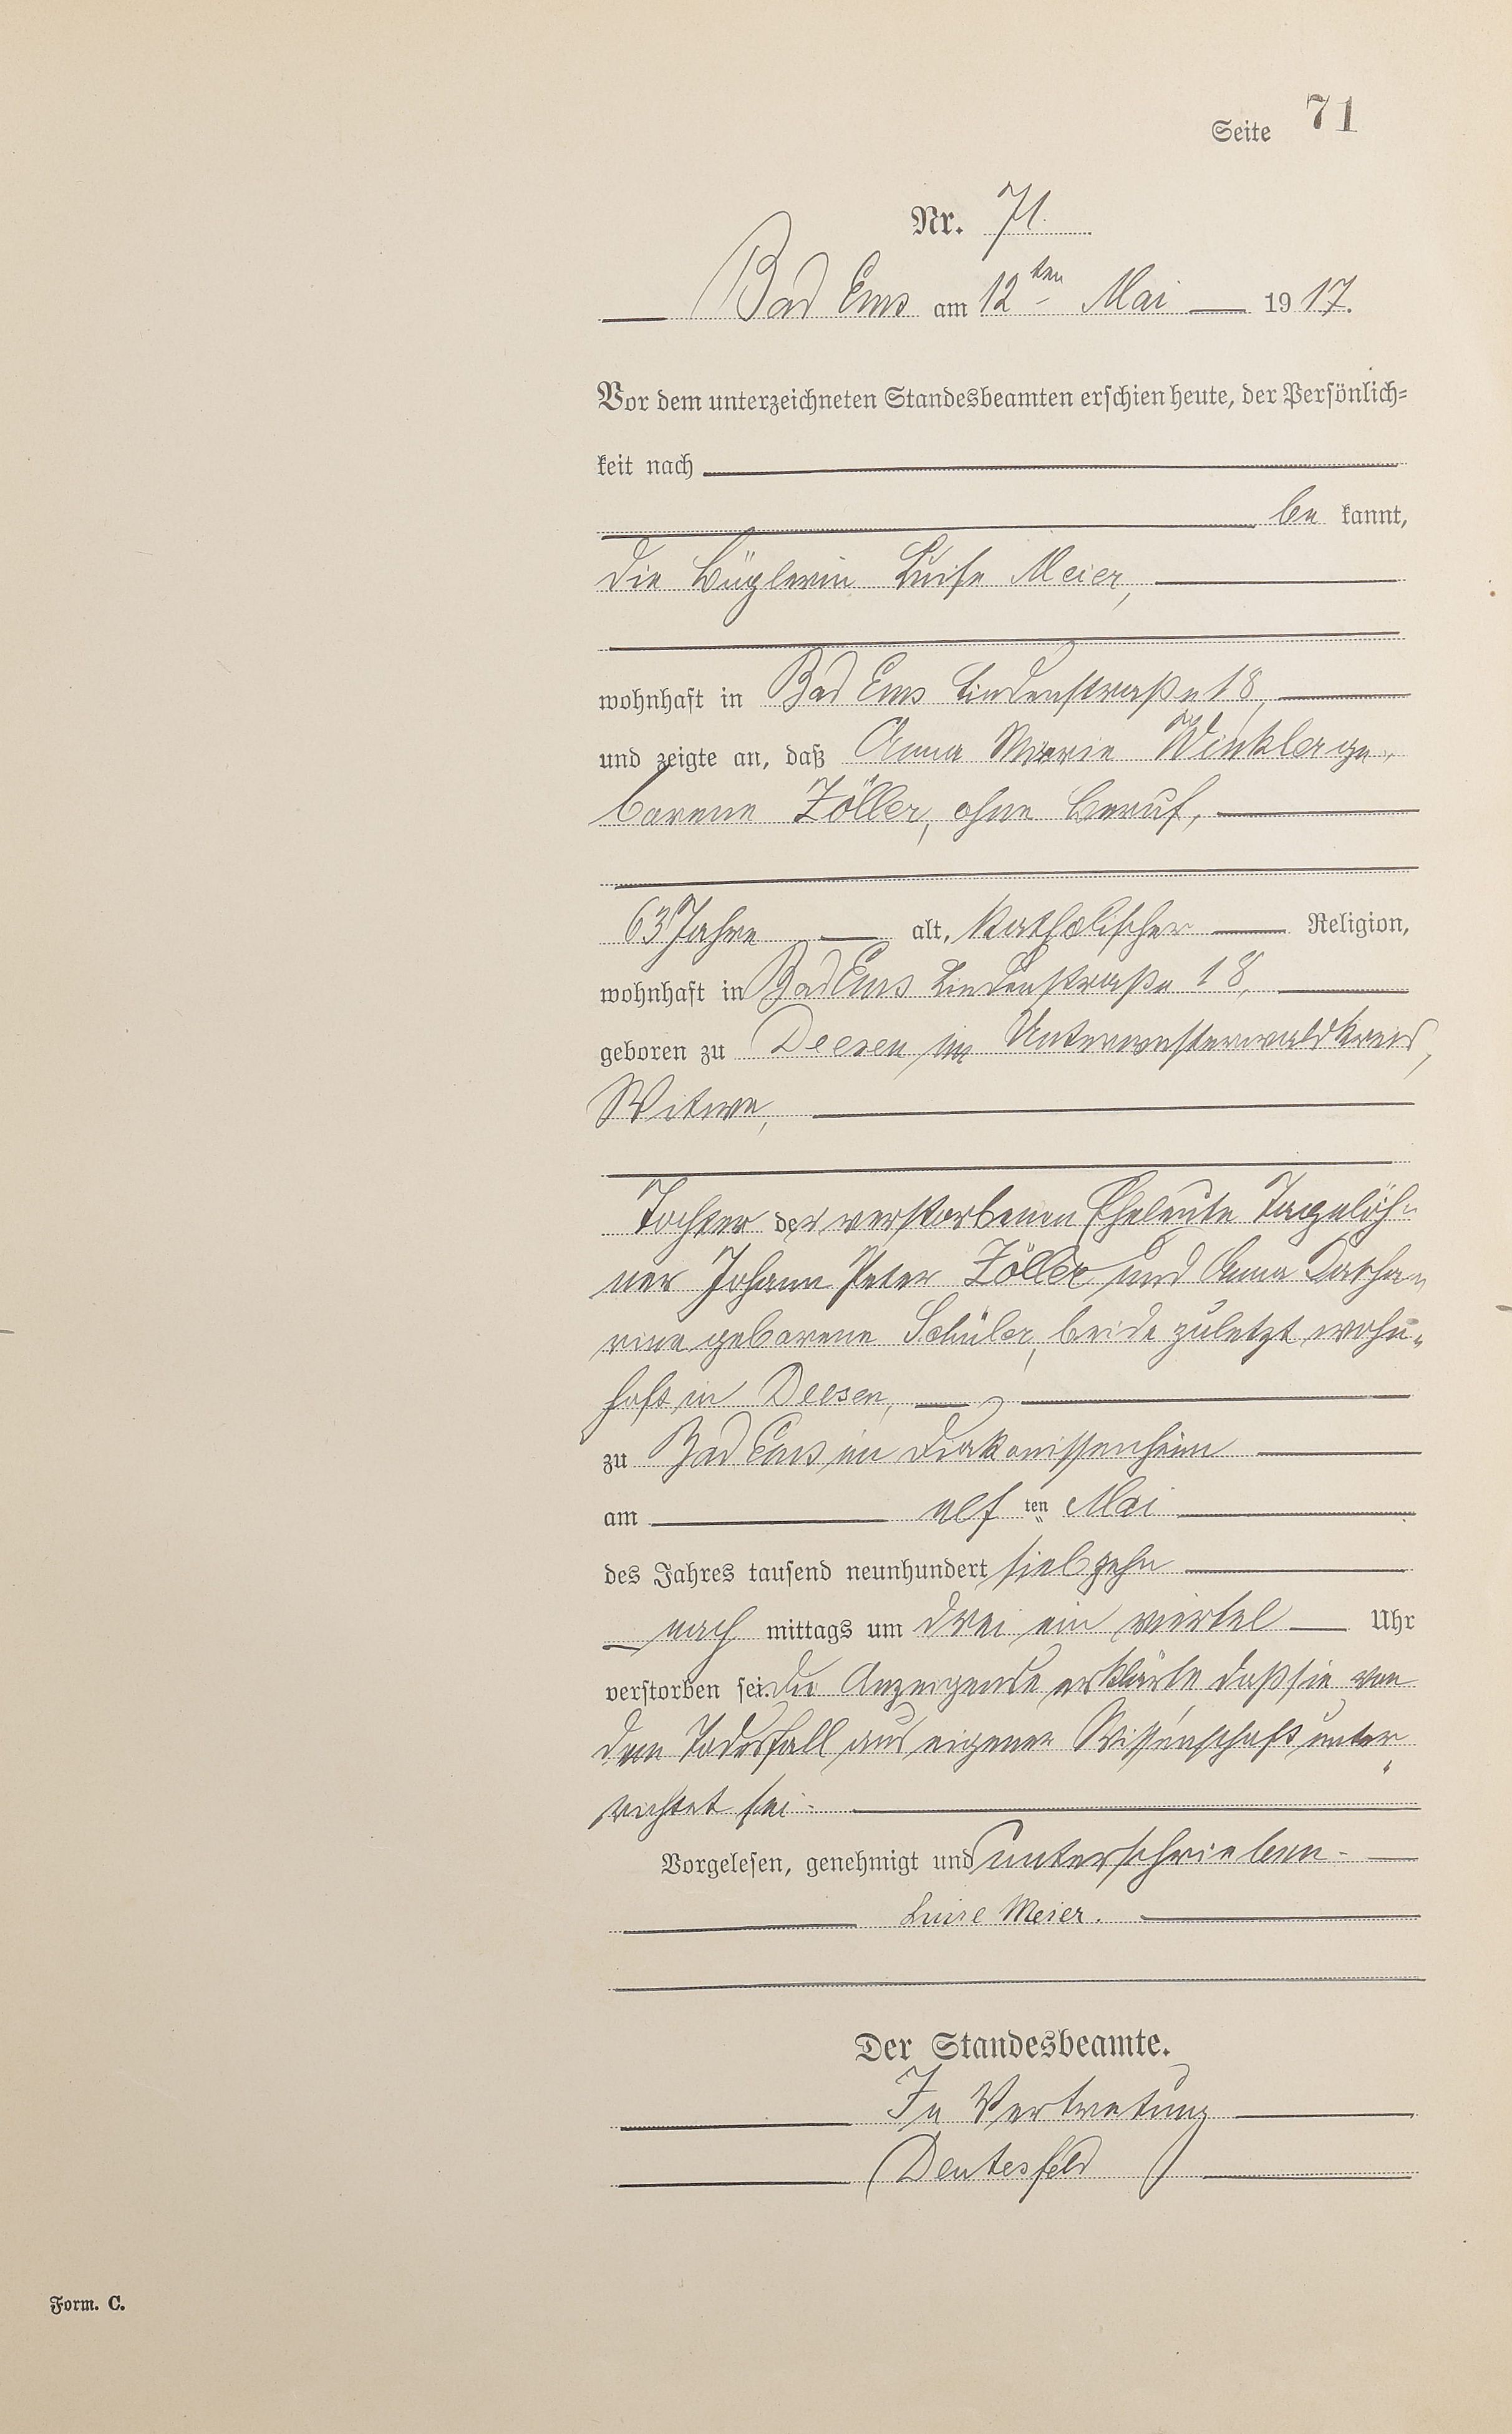 Seite 71
Nr. 71.
Bad Ems am 12ten Mai 1917.
Vor dem unterzeichneten Standesbeamten erschien heute, der Persönlich-
keit nach
be kannt,
die Büglerin Luise Meier,
wohnhaft in Bad Ems Lindenstraße 18,
und zeigte an, daß Anna Marie Winkler ge-
borene Zöller, ohne Beruf,
63 Jahre alt, katholischer Religion,
wohnhaft in Bad Ems Lindenstraße 18,
geboren zu Deesen im Unterwesterwaldkreis,
Witwe,
Tochter der verstorbenen Eheleute Tagelöh-
ner Johann Peter Zöller und Anna Katha-
rine geborene Schüler, beide zuletzt wohn-
haft in Deesen,
zu Bad Ems im Diakonissenheim
am elf ten Mai
des Jahres tausend neunhundert siebzehn
nach mittags um drei ein viertel Uhr
verstorben sei. Die Anzeigende erklärte daß sie von
dem Todesfall aus eigener Wissenschaft unter-
richtet sei.
Vorgelesen, genehmigt und unterschrieben.
Luise Meier.
Der Standesbeamte.
In Vertretung
Deutesfeld
Form. C.